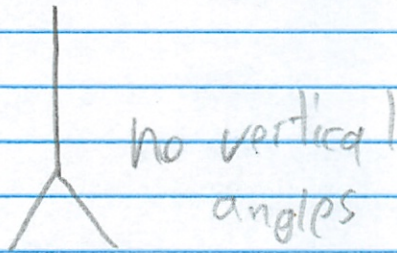 no vertical
angles